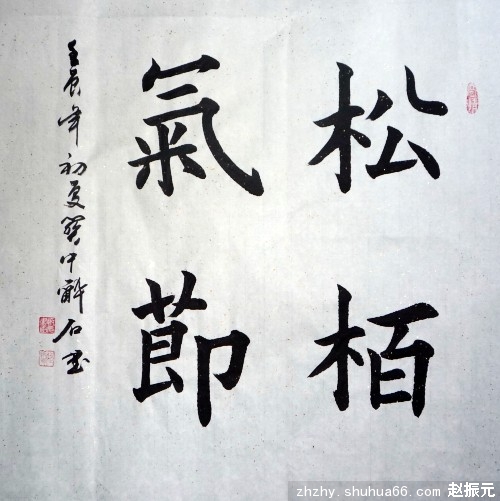 松栢
氣節
壬辰年初夏關中醉石書
zhzhy.shuhua66.com 赵振元